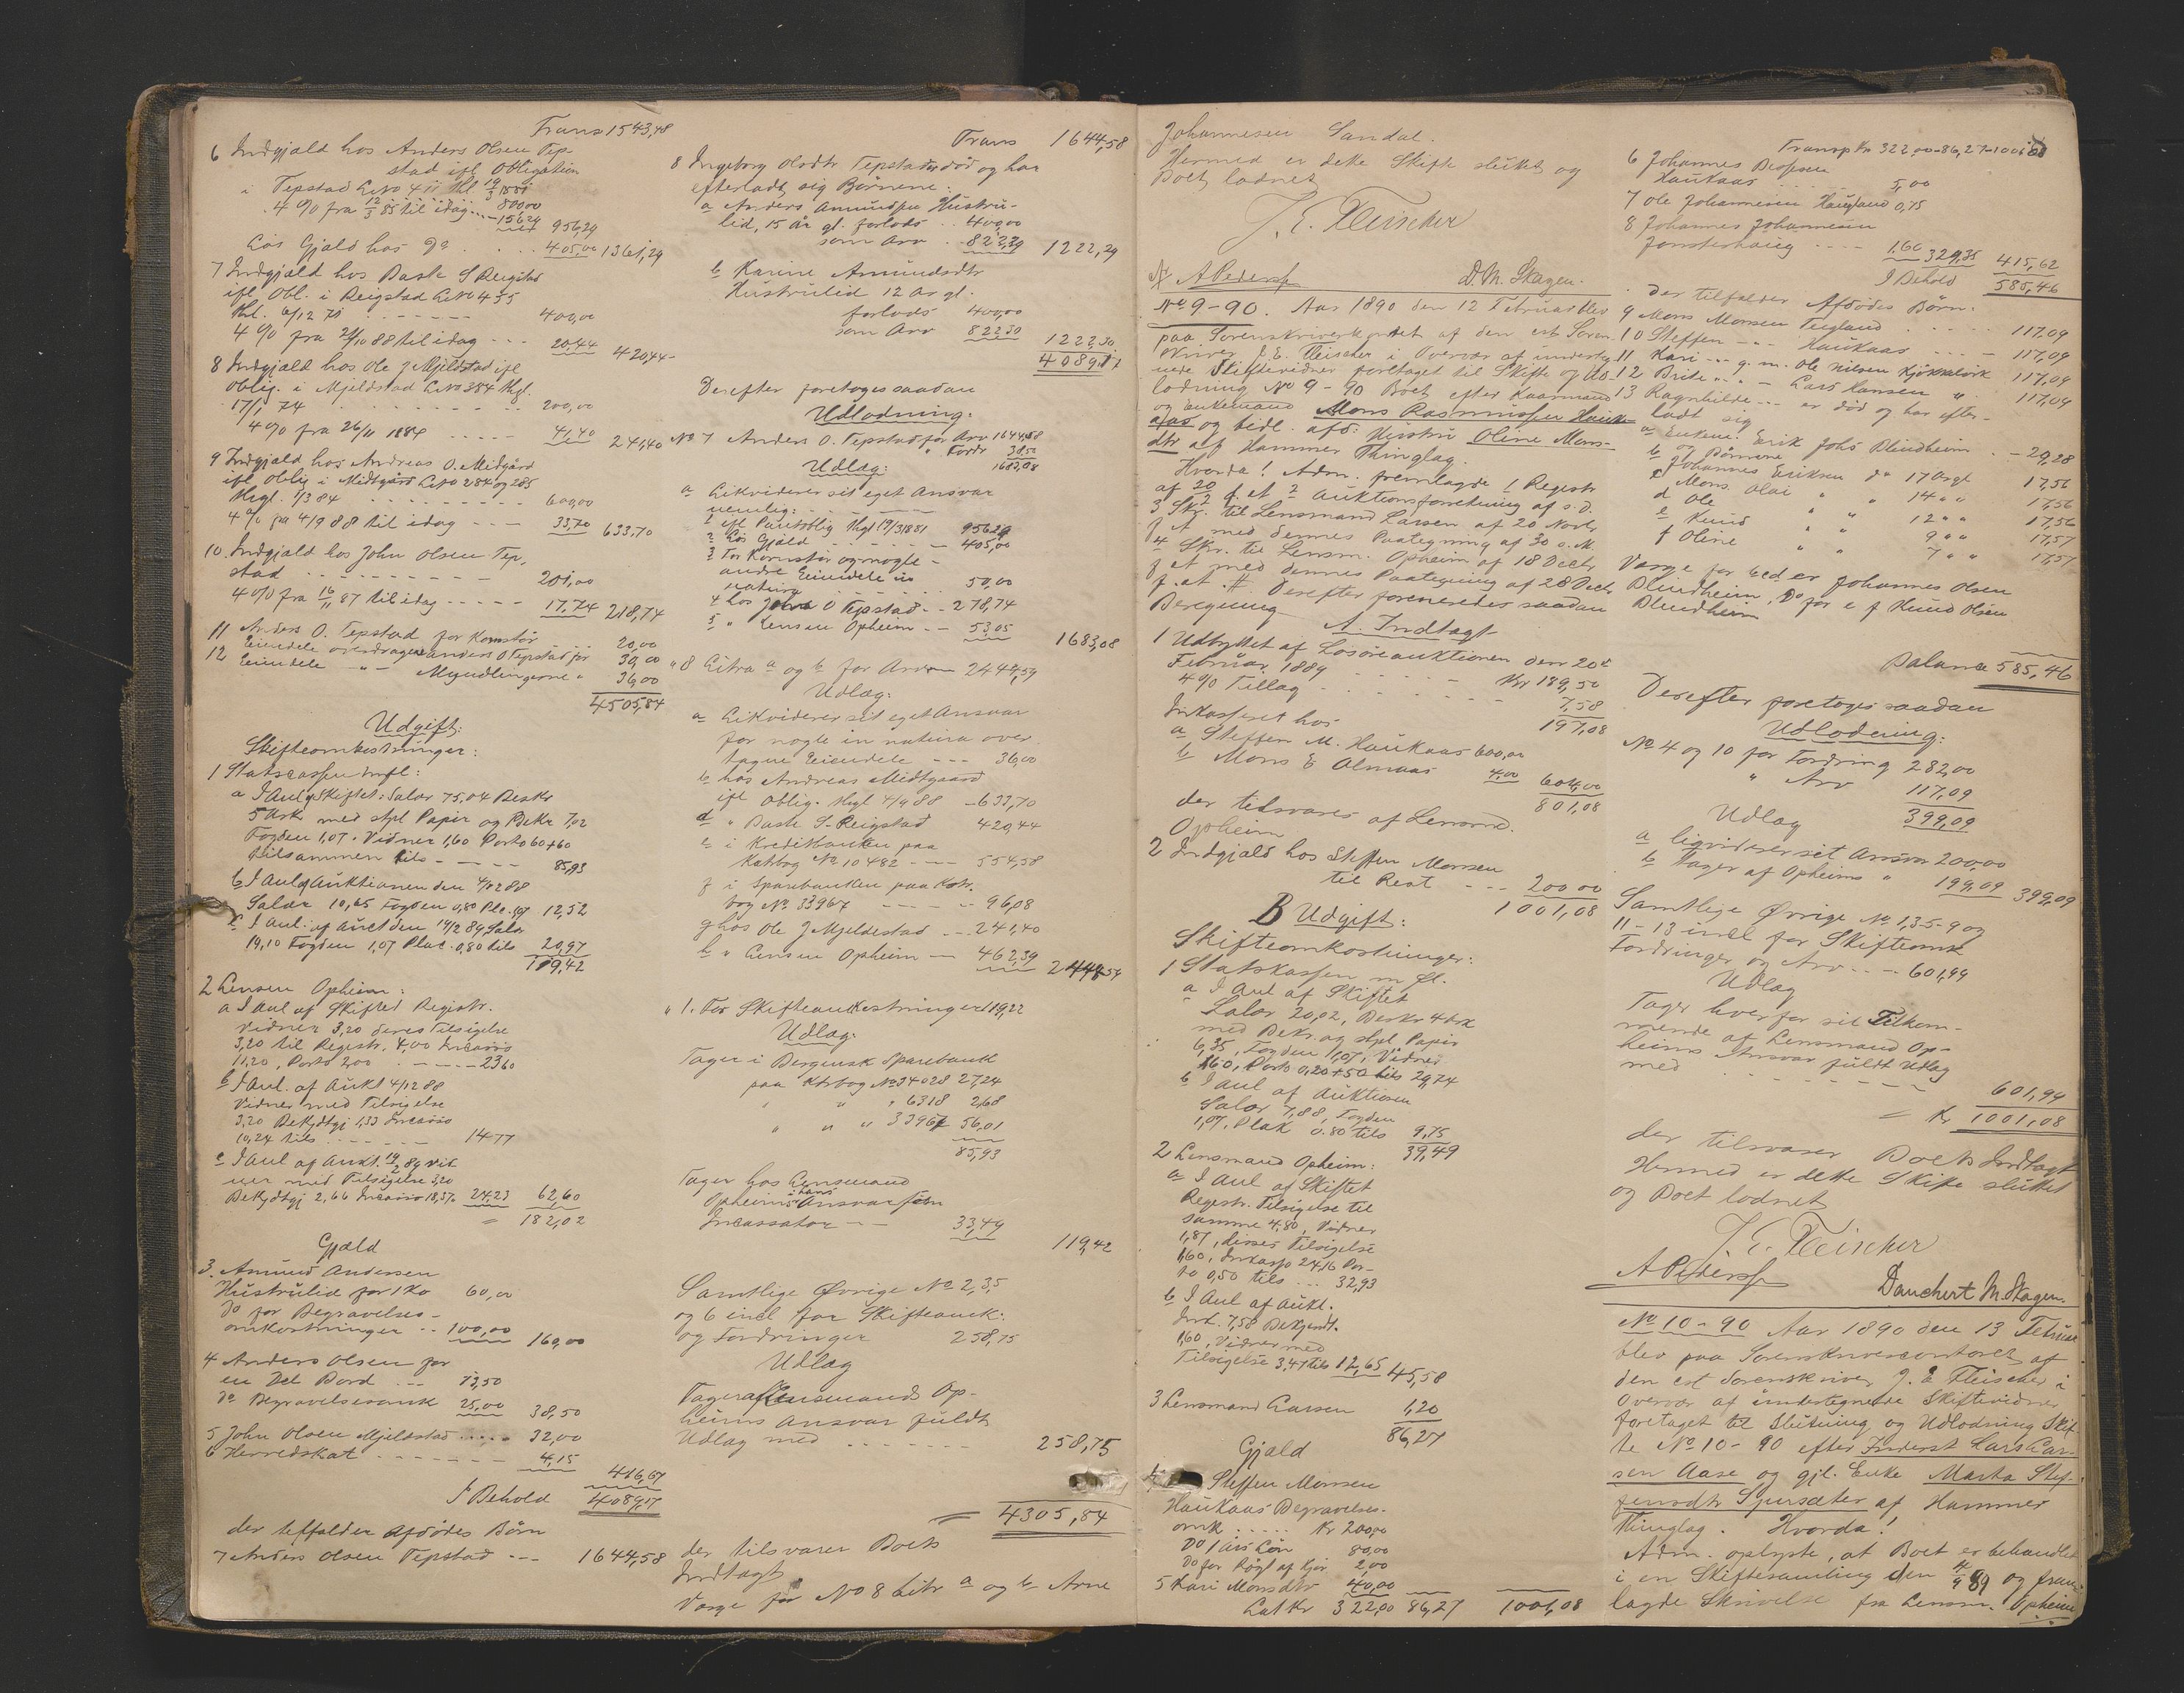 Trans 1543,48
6 Indgjæld hos Anders Olsen Tep-
stad ifl Obligation
i Tepstad LNo 411 thl 19/3 1881
800,00
4 % fra 12/3 85 til idag 156,29 956,29
Løs Gjæld hos do . . . 405,00 1361,29
7 Indgjæld hos Baste S Reigstad
ifl Obl. i Reigstad LNo 435
thl. 6/12 71 - - - 400,00
4 % fra 21/10 88 til idag - - 20,44 420,44
8 Indgjæld hos Ole J Mjeldstad ifl
Oblig. i Mjeldstad LNo 384 thgl.
17/1 74 . . . 200,00
4 % fra 26/11 1884 . . . 41,40 241,40
9 Indgjæld hos Andreas O. Midgård
ifl Oblig i Midtgård LNo 284 og 285
thgl. 1/3 84 . . . 600,00
4 % fra 4/9 88 til idag - - - 33,70 633,70
10. Indgjæld hos John Olsen Tep-
stad - - - 201,00
4 % fra 16/11 87 til idag - - - 17,74 218,74
11 Anders O. Tepstad for Kornstør 20,00
Eiendele overdragne Anders O Tepstad for 30,00
12 Eiendele -"- Myndlingerne " 36,00
4505,84
Udgift:
Skifteomkostninger:
1 Statscassen mfl:
a I Anl af Skiftet: Salær 75,04 Beskr
5 Ark med stpl Papir og Bekr 7,02
Fogden 1,07. Vidner 1,60 Porto 60+60
tilsammen tils - - - 85,93
b I Anl af Auktionen den 4/12 88
Salær 10,65 Fogden 0,80 Pla. 1,07 12,52
c I Anl. af Auct den 14/2 89 Salær
19,10 Fogden 1,07 Plac. 0,80 tils 20,97
119,42
2 Lensm Opheim:
a I Anl af Skiftet Registr.
Vidner 3,20 deres Tilsigelse
3,20 til Registr. 4,00 Incasso
11,20, Porto 2,00 - - - 23,60
b I Anl. af Aukt 4/12 88
Vidner med Tilsigelse
3,20 Bekjdtgj 1,33 Incasso
10,24 tils - - - 14,77
c I Anl af Aukt. 14/2 89 Vid-
ner med Tilsigelse 3,20
Bekjdtgj 2,66 Incasso 18,37 24,23 62,60
= 182,02
Gjæld
3. Amund Andersen
Hustrulid for 1 Ko 60,00
Do for Begravelses-
omkostninger . . 100,00 160,00
4 Anders Olsen for
en Del Bord - - - 13,50
do Begravelsesomk 25,00 38,50
5 John Olsen Mjeldstad . . . 32,00
6 Herredskat - - - 4,15 416,67
I Behold 4089,17
der tilfalder Afdødes Børn
7 Anders Olsen Tepstad - - - 1644,58
Trans 1644,58
8 Ingeborg Olsdtr Tepstad er død og har
efterladt sig Børnene:
a Anders Amundsen Hustru-
lid, 15 År gl. forlods . . 400,00
som Arv . . 822,29 1222,29
b Karine Amundsdtr
Hustrulid 12 Ar gl.
forlods 400,00
som Arv 822,30 1222,30
4089,17
Derefter foretoges saadan
Udlodning:
No 7 Anders O. Tepstad for Arv 1644,58
" Fordr 38,50
1683,08
Udlæg:
a Likviderer sit eget Ansvar
nemlig:
1 ifl Pantoblig thgl 19/3 1881 956,29
2 Løs Gjæld - - - 405,00
3 For Kornstør og nogle
andre Eiendele in
natura . . . 50,00
4 hos John O Tepstad - - 218,74
5 " Lensm Opheim - - 53,05
1683,08
" 8 Litra a og b for Arv 2444,59
Udlæg:
a Likviderer sit eget Ansvar
for nogle in natura over-
tagne Eiendele - - - 36,00
b hos Andreas Midtgaard
ifl Oblig. thgl 4/9 88 - 633,70
d " Baste S. Reigstad 420,44
e i Kreditbanken paa
Katbog No 10482 - - - 554,58
f i Sparebanken paa Kotr.
bog No. 33967 - - - 96,08
g hos Ole J Mjeldestad - - 241,40
h " Lensm Opheim - 462,39
2444,59
" 1. For Skifteomkostninger 119,42
Udlæg:
Tager i Bergensk Sparebank
paa Ktrbog No 34028 27,24
" " " 6318 2,68
" " " 33967 56,01
85,93
Tager hos Lensmand
Opheims hans Ansvar som
Incassator - - 33,49
119,42
Samtlige Øvrige No 2,3,5
og 6 incl for Skifteomk:
og Fordringer 258,75
Udlæg
Tager af Lensmand Op-
heims Ansvar fuldt
Udlæg med - - - 258,75
= 4305,84
der tilsvarer Boets
Indtægt
Værge for No 8 Litr a og b Arne
Johannesen Sandal.
Hermed er dette Skifte sluttet og
Boet lodnet
J. E. Fleischer
A Peders D. M. Skagen.
No 9-90. Aar 1890 den 12 Februar blev
paa Sorenskriverkontoret af den cst Soren-
skriver J. E. Fleischer i Overvær af undertg-
nede Skiftevidner foretaget til Skifte og Ud-
lodning No 9-90 Boet efter Kaarmand
og Enkemand Mons Rasmussen Hauk-
aas og tidl. afd. Hustru Oline Mons-
dtr af Hammer Thinglag.
Hvorda! Adm. fremlagde 1 Registr
af 20 d. et 2 Auktionsforretning af s. D.
3 Skr. til Lensmand Larsen af 20 Novbr
f. A. med dennes Paategning af 30 s. M.
4 Skr. til Lensm. Opheim af 18 Decbr
f. A. med dennes Paategning af 28 Decbr
f. At. #. Derefter forenedes saadan
Beregning
A. Indtægt
1 Udbyttet af Løsøreauktionen den 20de
Februar 1889 - - - Kr 189,50
4 % Tillæg - - - 7,58
197,08
Inkasseret hos
a Steffen M. Haukaas 600,00
b Mons E Almaas 4,00 604,00
801,08
der tilsvares af Lensmd.
Opheim
2 Indgjæld hos Steffen Monsen
til Rest - - - 200,00
1001,08
B Udgift:
Skifteomkostninger:
1 Statskassen m fl.
a I Anl af Skiftet
Salær 20,02, Beskr 4 Ark
med Bekr. og stpl Papir
6,35, Fogden 1,07, Vidner
1,60, Porto 0,20+50 tils 29,74
b I Anl af Auktionen
Salær 7,88, Fogden
1,07, Plak 0.80 tils 9,75
39,49
2 Lensmand Opheim:
a I Anl af Skiftet
Registr. Tilsigelse til
samme 4,80, Vidner
1,87, disses Tilsigelse
1,60, Inkasso 24,16 Por-
to 0,50 tils . . . 32,93
b I Anl af Aukt.
Ink. 7,58 Bekjendt.
1,60, Vidner med
Tilsigelse 3,47 tils 12,65 45,58
3 Lensmand Larsen 1,20
86,27
Gjæld
4 Steffen Monsen
Haukaas Begravelses-
omk . . . Kr 200,00
Do 1 Års Løn 80,00
Do for Røgt af Kjør 2,00
5 Kari Monsdtr 40,00
Lat Kr 322,00 86,27 1001,08
Transp Kr 322,00 - 86,27 - 1001,08
6 Johannes
Haukaas . . . 5,00
7 Ole Johannesen Haugland 0,75
8 Johannes Johannesen
Jonsterhaug - - - 1,60 329,35 415,62
I Behold 585,46
der tilfalder Afdødes Børn.
9 Mons Monsen Teigland . . . 117,09
10 Steffen -"- Haukaas - - - 117,09
11 Kari - - g. m. Ole Nilsen Kjøkkelvik 117,09
12 Brite " " - Lars Hansen " 117,09
13 Ragnhilde - - er død og har efter-
ladt sig
a Enkem. Erik Johs Blindheim . - 29,28
og Børnene
b Johannes Eriksen do 17 Årgl 17,56
c Mons Olai " " 14 " " 17,56
d Ole " " 12 " " 17,56
e Knud " " 9 " " 17,57
f Oline " " 7 " " 17,57
Værge for bcd er Johannes Olsen
Blindheim, Do for e f Knud Olsen
Blindheim
Balance 585,46
Derefter foretoges saadan
Udlodning:
No 4 og 10 for Fordring 282,00
" Arv 117,09
399,09
Udlæg
a liqviderer sit Ansvar 200,00
b Tager af Opheims " 199,09 399,09
Samtlige Øvrige No 1,3-5-9 og
11-13 incl for Skifteomk
Fordringer og Arv . . - 601,99
Udlæg
Tager hver for sit Tilkom-
mende af Lensmand Op-
heims Ansvar fuldt Udlæg
med - - - 601,99
= Kr 1001,08
der tilsvarer Boets Indtægt
Hermed er dette Skifte sluttet
og Boet lodnet
J. E. Fleischer
A Peders
Danchert M. Skagen.
No 10-90 Aar 1890 den 13 Februar
blev paa Sorenskrivercontoret af
den cst Sorenskriver J. E Fleischer i
Overvær af undertegnede Skiftevidner
foretaget til Slutning og Udlodning Skif-
te No 10-90 efter Inderst Lars Lar-
sen Aase og gjl. Enke Marta Stef-
fensdtr Spursæter af Hammer
Thinglag. Hvorda!
Adm. oplyste, at Boet er behandlet
i en Skiftesamling den 4/9 89 og frem-
lagde Skrivelse fra Lensm. Opheim